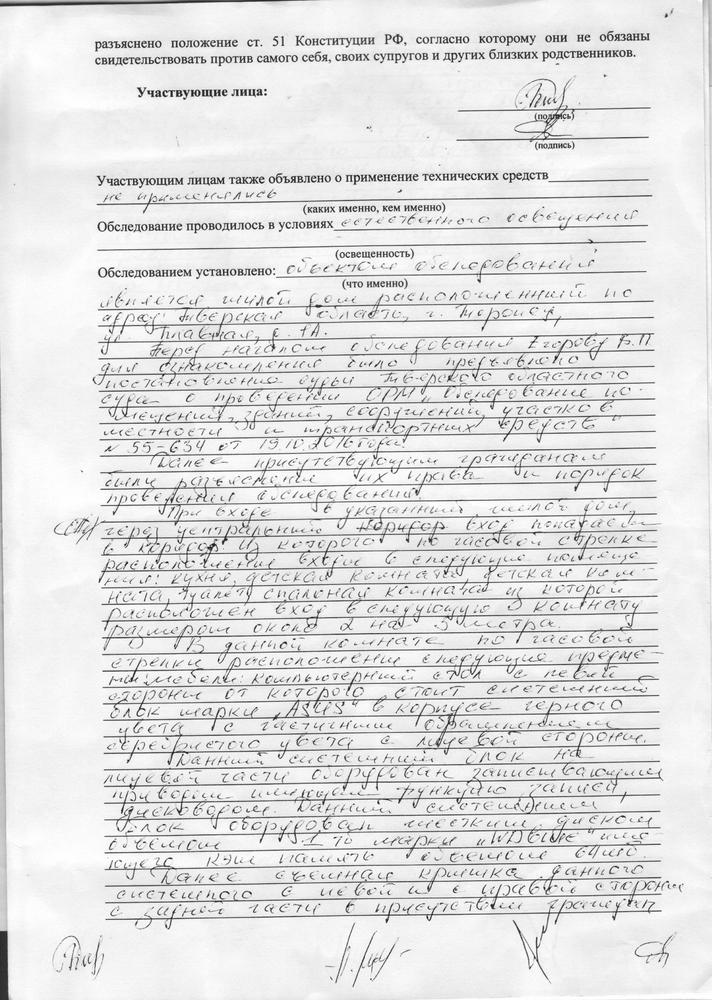 разъяснено положение ст. 51 Конституции РФ, согласно которому они не обязаны
свидетельствовать против самого себя, своих супругов и других близких родственников.
Участвующие лица:
(подпись)
(подпись)
Участвующим лицам также объявлено о применение технических средств
не применялись
(каких именно, кем именно)
Обследование проводилось в условиях естественного освещения
(освещенность)
Обследованием установлено: объектом обследования
(что именно)
является жилой дом расположенный по
адресу: Тверская область, г. Торопец,
ул. Главная, д. 1А.
Перед началом обследования Егорову В.П
для ознакомления было предъявлено
постановление судьи Тверского областного
суда о проведении ОРМ „Обследование по-
мещений, зданий, сооружений, участков
местности и транспортных средств"
№ 55-634 от 19.10.2016 года.
Далее присутствующим гражданам
были разъяснены их права и порядок
проведения обследования.
При входе в указанный жилой дом,
через центральный коридор вход попадаем
в коридор из которого по часовой стрелке
расположены входы в следующие помеще-
ния: кухня, детская комната, детская ком-
ната, туалет, спальная комната из которой
расположен вход в следующую комнату
размером около 2 на 3 метра.
В данной комнате по часовой
стрелки расположены следующие предме-
ты мебели: компьютерный стол с левой
стороны от которого стоит системный
блок марки „ASUS" в корпусе черного
цвета с частичным обрамлением
серебристого цвета с лицевой стороны.
Данный системный блок на
лицевой части оборудован записывающим
приводом имеющим функцию записи,
дисководом. Данный системный
блок оборудован жестким диском
объемом 1 Тб марки „WD Blue" име-
ющего кэш память объемом 64 мб.
Далее съемная крышка данного
системного с левой и с правой стороны
с задней части в присутствии граждан